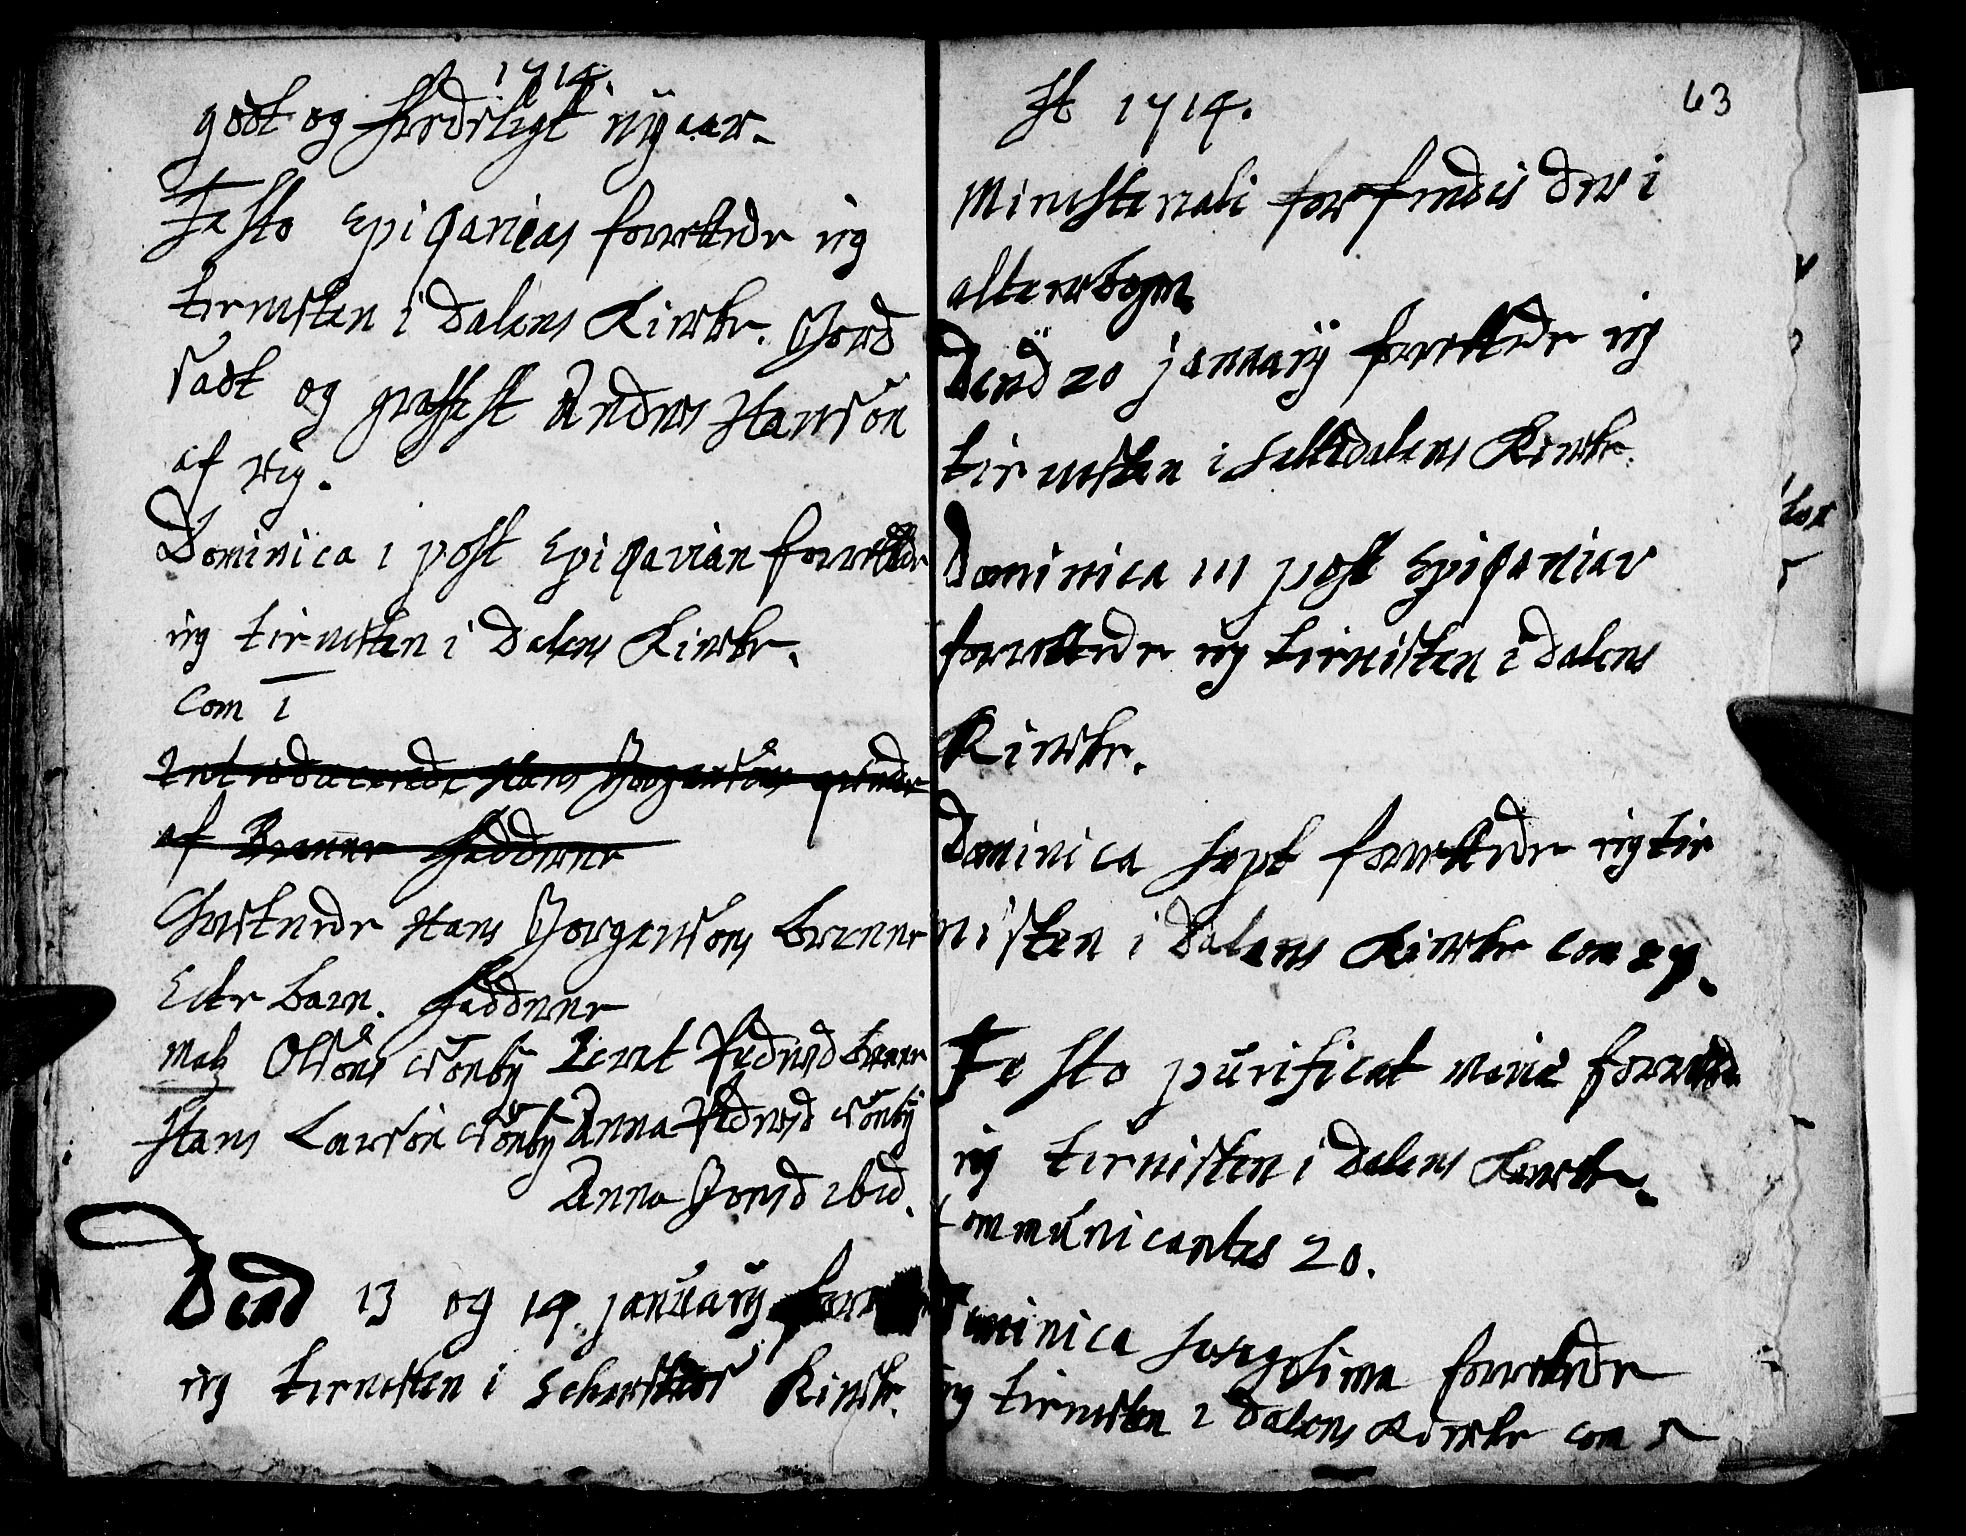 1714.
godt og fredeligt nÿcar.
Festo Epiqanieas forrettede ieg
tienesten i Dalens Kircke. Jord
sadt og graffest Anders Hanssön
af Wig.
Dominica 1 post Epiqanian forrettede
ieg tienesten i Dalens Kircke.
Com 1
Introducerede Hans Jörgensöns qvinde
af Brenne fadderne
Christnede Hans Jörgensöns Brenne
Ecte barn. fadderne
Matz Olsöns Brit Pedersd Brenn
Hans Larsön Anna Pedersd
Anna Joensd ibid.
Dend 13 og 14 januarÿ
ieg tienesten i Kircke.
It 1714.
63
Ministeriali forfindes der i
alterbogen
Dend 20 januarÿ forrettede ieg
tienesten i Seltedalens Kircke.
Dominica III post Epiqaniar
forrettede ieg tienisten i Dalens
Kircke.
Dominica Sept forrettede ieg tie
nisten i Dalens Kircke com 27.
Festo purificat Mariæ forrettede
ieg tienisten i Dalens Kircke
Communicantes 20.
Dominica Sexagesima forrettede
ieg tienesten i Dalens Kircke com 5